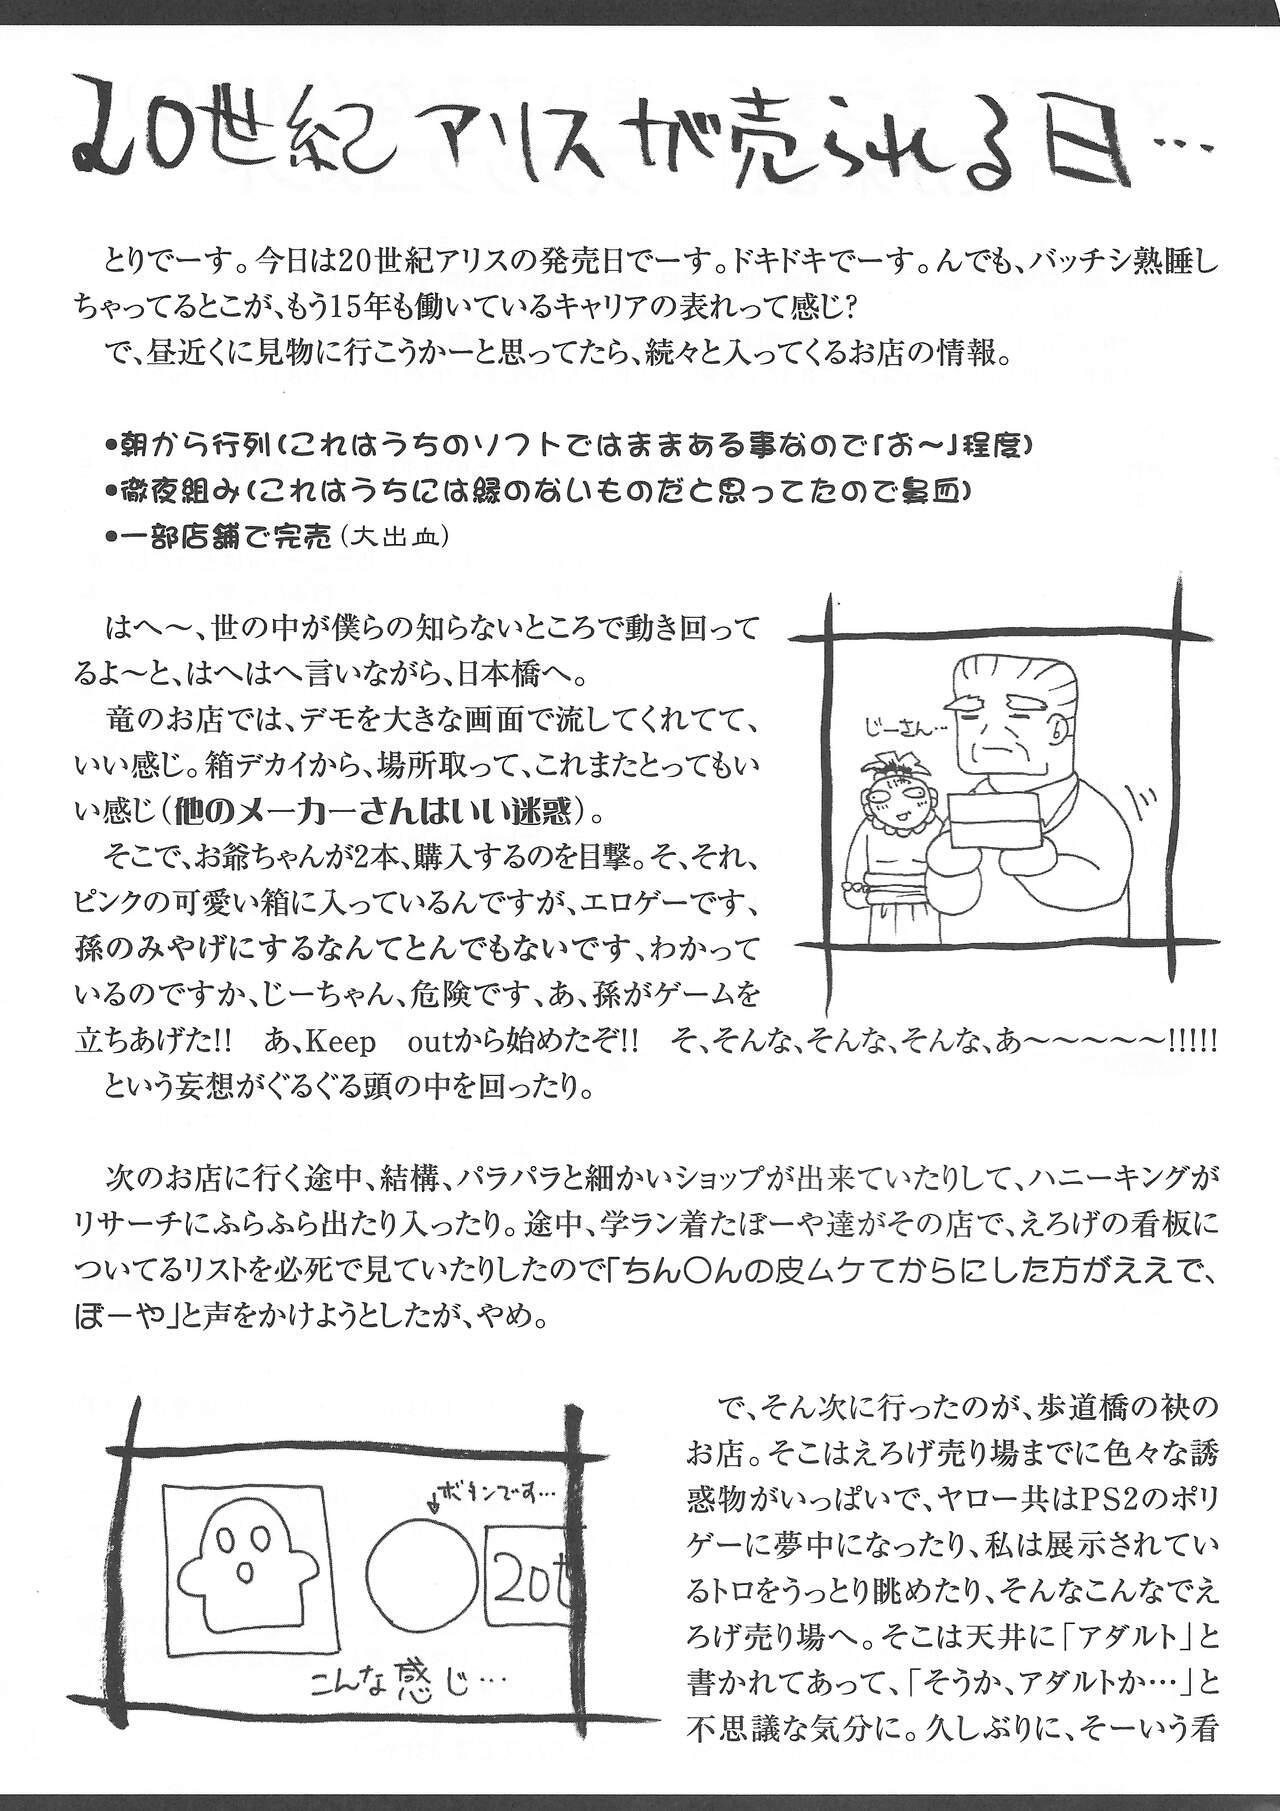 20世紀アリスが売られる日…
とりでーす。今日は20世紀アリスの発売日でーす。ドキドキでーす。んでも、バッチシ熟睡し
ちゃってるとこが、もう15年も働いているキャリアの表れって感じ?
で、昼近くに見物に行こうかーと思ってたら、続々と入ってくるお店の情報。
●朝から行列(これはうちのソフトではままある事なので「お〜」程度)
●徹夜組み(これはうちには縁のないものだと思ってたので鼻血)
●一部店舗で完売(大出血)
はへ〜、世の中が僕らの知らないところで動き回って
るよ〜と、はへはへ言いながら、日本橋へ。
竜のお店では、デモを大きな画面で流してくれてて、
いい感じ。箱デカイから、場所取って、これまたとってもい
い感じ(他のメーカーさんはいい迷惑)。
そこで、お爺ちゃんが2本、購入するのを目撃。そ、それ、
ピンクの可愛い箱に入っているんですが、エロゲーです、
孫のみやげにするなんてとんでもないです、わかって
いるのですか、じーちゃん、危険です、あ、孫がゲームを
立ちあげた!!　あ、Keep　outから始めたぞ!!　そ、そんな、そんな、そんな、あ〜〜〜〜〜!!!!!
という妄想がぐるぐる頭の中を回ったり。
じーさん…
次のお店に行く途中、結構、パラパラと細かいショップが出来ていたりして、ハニーキングが
リサーチにふらふら出たり入ったり。途中、学ラン着たぼーや達がその店で、えろげの看板に
ついてるリストを必死で見ていたりしたので「ちん〇んの皮ムケてからにした方がええで、
ぼーや」と声をかけようとしたが、やめ。
ボタンです…
20世
こんな感じ…
で、そん次に行ったのが、歩道橋の袂の
お店。そこはえろげ売り場までに色々な誘
惑物がいっぱいで、ヤロー共はPS2のポリ
ゲーに夢中になったり、私は展示されてい
るトロをうっとり眺めたり、そんなこんなでえ
ろげ売り場へ。そこは天井に「アダルト」と
書かれてあって、「そうか、アダルトか…」と
不思議な気分に。久しぶりに、そーいう看